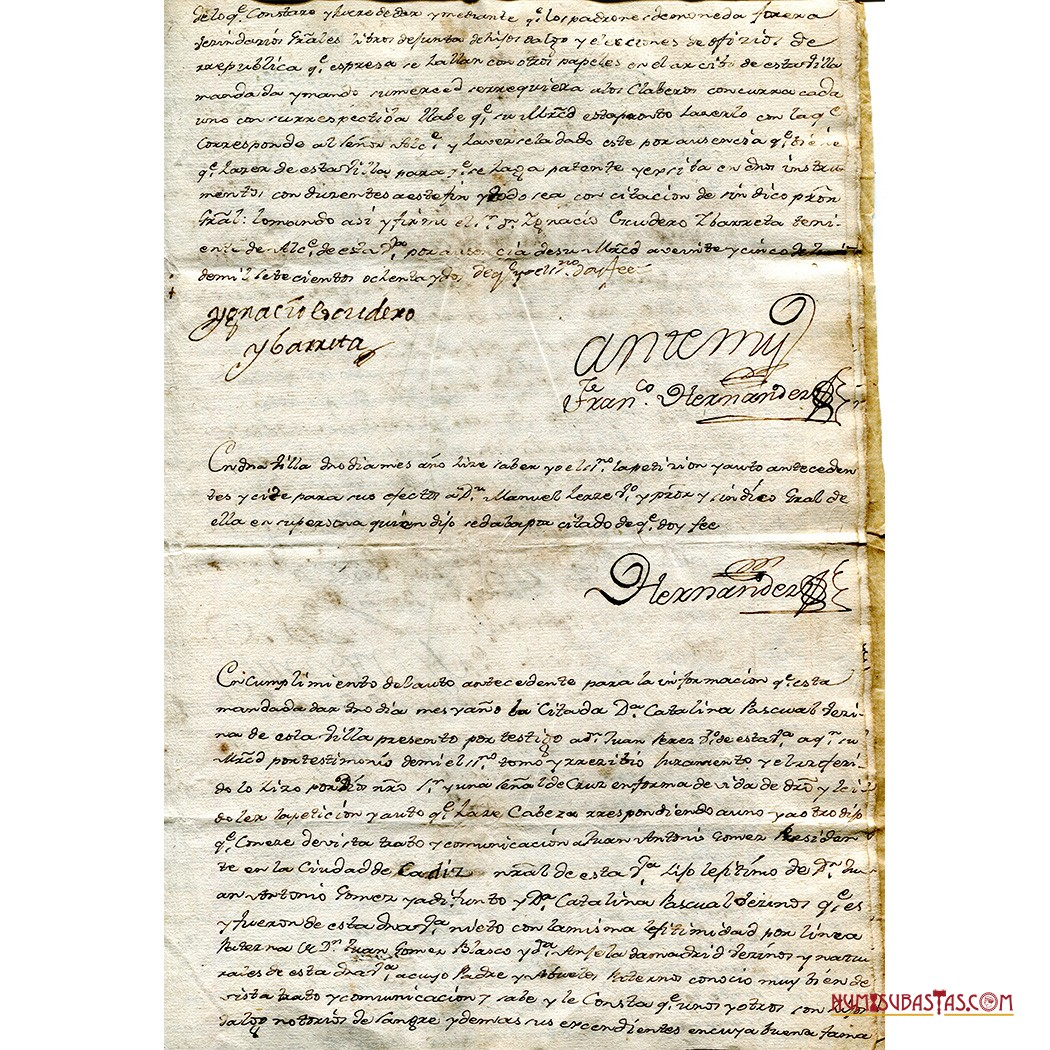 de lo q.e Constaro y hicre de dar y mediante q.e los padrones de moneda forera
vezindarios Grâles Libros de Junta de hijos dalgo y elecciones de ofizios de
rrepublica q.e espresa se hallan con otros papeles en el archibo de esta Villa
mandada y mando su merced se rrequiera a los Claberos concurra cada
uno con su rrespectiba llabe q.e su Mrzd esta pronto hazerlo con la q.e
corresponde al Señor Alc.e y haversela dado este por ausencia q.e tiene
q.e hazer de esta Villa para q.e se haga patente y exsiba en dhos instru
mentos conduzentes a este fin y todo sea con citacion de sindico prôn
Grâl: lo mando asi y firmo el S.r D.n Ygnacio Escudero Ybarreta teni
ente de Alc.e de esta V.a por ausencia de su Mrzd a veinte y cinco de
de mil setecientos ochenta y dos de q.e yo el S.no doy fee
Ygnacio Escudero
Ybarreta
Antemy
Fran.co Hernandez
En dha Villa dho dia mes año hize saber yo el S.no la petizion y auto anteceden
tes y cite para sus efectos a D.n Manuel Perez V.o y prôr y sindico Gral de
ella en su persona quien dijo se daba por citado de q.e doy fee
Hernandez
En cumplimiento del auto antecedente para la informacion q.e esta
mandada dar dho dia mes y año la Citada D.a Catalina Pasqual vezi
na de esta Villa presento por testigo a D.n Juan Perez V.o de esta V.a a q.n su
Mrzd por testimonio de mi el S.no tomo y rrezibio Juramento y el suzferi
do lo hizo por Dios nrô S.r y una Señal de Cruz en forma de vida de drô y leí
do le la petizion y auto q.e haze Cabeza rrespondiendo a uno y a otro dijo
q.e Coneze de vista trato y comunicacion a Juan Antonio Gomez Residen
te en la Ciudad de Cadiz nrâl de esta V.a hijo lejitimo de D.n Ju
an Antonio Gomez ya difunto y D.a Catalina Pasqual vezinos q.e es
y fueron de esta dha V.a nieto con la misma lejitimidad por linea
Paterna de D.n Juan Gomez Blasco y D.a Anjela Lamadrid vezinos y natu
rales de esta dha V.a a cuyo Padre y Abuelos Paternos conocio muy bien de
vista trato y comunicacion y sabe y le Consta q.e unos y otros son
dalgo notorios de sangre y demas sus excendientes en cuya buena fama
NUMISUBASTAS.COM